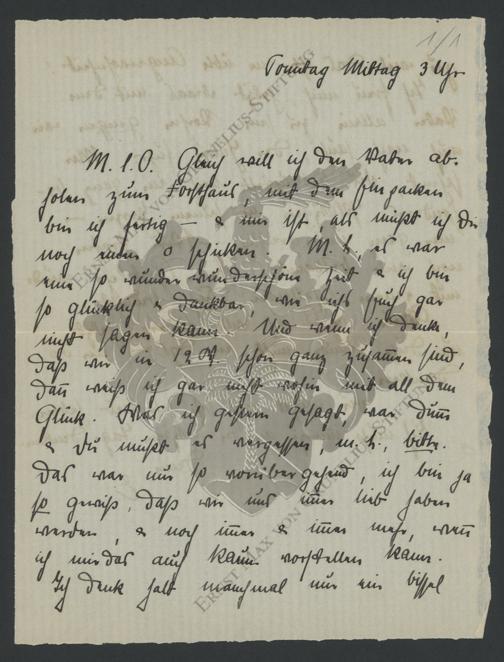 1/1
Sonntag Mittag 3 Uhr
M. l. O. Gleich will ich den Vater ab-
holen zum Forsthaus, mit dem Einpacken
bin ich fertig – & mir ist, als müßt ich Dir
noch einen o schicken. M. l., es war
eine so wunder wunderschöne Zeit & ich bin
so glücklich & dankbar, wie ichs Euch gar
nicht sagen kann. Und wenn ich denke,
daß wir in schon ganz zusammen sind,
dann weiß ich gar nicht wohin mit all dem
Glück. Was ich gestern gesagt, war dumm
& Du mußt es vergessen, m. l., bitte.
Das war nur so vorübergehend, ich bin ja
so gewiß, daß wir uns immer lieb haben
werden, & noch immer & immer mehr, wenn
ich mir das auch kaum vorstellen kann.
Ich denk halt manchmal nur ein bissel
ERNST MAX VON CORNELIUS-STIFTUNG
ERNST MAX VON CORNELIUS-STIFTUNG